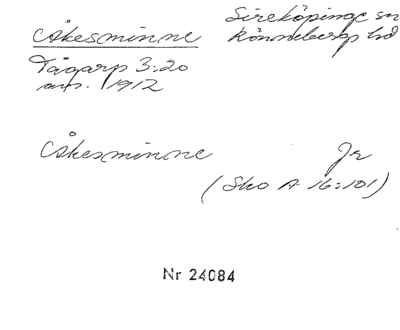 Åkesminne
Sireköpinge sn
Rönneberga hd
Tågarp 3:20
1912
Åkesminne Jr
(Sko A 16:101)
Nr 24084